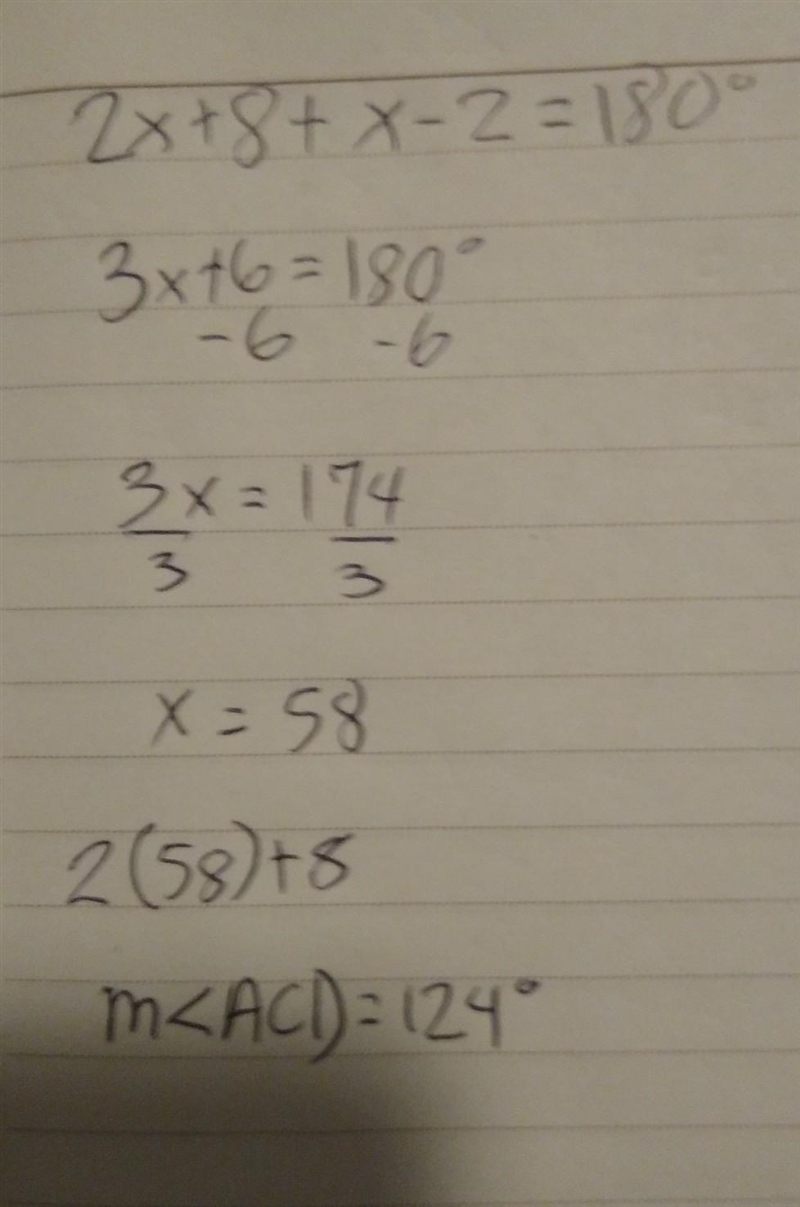 2x+8+x-2=180°
3x+6=180°
-6 -6
3x=174
3 3
x=58
2(58)+8
m<ACD=124°